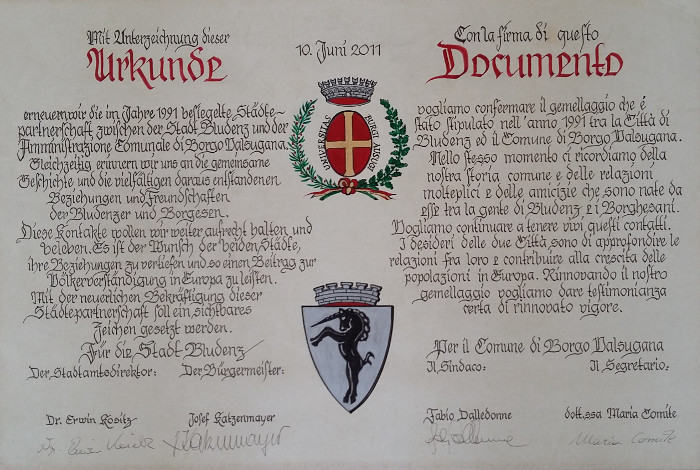 Mit Unterzeichnung dieser
Urkunde
erneuern wir die im Jahre 1991 besiegelte Städte-
partnerschaft zwischen der Stadt Bludenz und der
Amministrazione Comunale di Borgo Valsugana.
Gleichzeitig erinnern wir uns an die gemeinsame
Geschichte und die vielfältigen daraus entstandenen
Beziehungen und Freundschaften
der Bludenzer und Borgesen.
Diese Kontakte wollen wir weiter aufrecht halten und
beleben. Es ist der Wunsch der beiden Städte,
ihre Beziehungen zu vertiefen und so einen Beitrag zur
Völkerverständigung in Europa zu leisten.
Mit der neuerlichen Bekräftigung dieser
Städtepartnerschaft soll ein sichtbares
Zeichen gesetzt werden.
Für die Stadt Bludenz
Der Stadtamtsdirektor: Der Bürgermeister:
Dr. Erwin Kositz Josef Katzenmayer
10. Juni 2011
UNIVERSITAS BURGI AUSUGI
Con la firma di questo
Documento
vogliamo confermare il gemellaggio che é
stato stipulato nell'anno 1991 tra la Città di
Bludenz ed il Comune di Borgo Valsugana.
Nello stesso momento ci ricordiamo della
nostra storia comune e delle relazioni
molteplici e delle amicizie che sono nate da
esse tra la gente di Bludenz e i Borghesani.
Vogliamo continuare a tenere vivi questi contatti.
I desideri delle due Città sono di approfondire le
relazioni fra loro e contribuire alla crescita delle
popolazioni in Europa. Rinnovando il nostro
gemellaggio vogliamo dare testimonianza
certa di rinnovato vigore.
Per il Comune di Borgo Valsugana
Il Sindaco: Il Segretario:
Fabio Dalledonne dott.ssa Maria Comite
Maria Comite